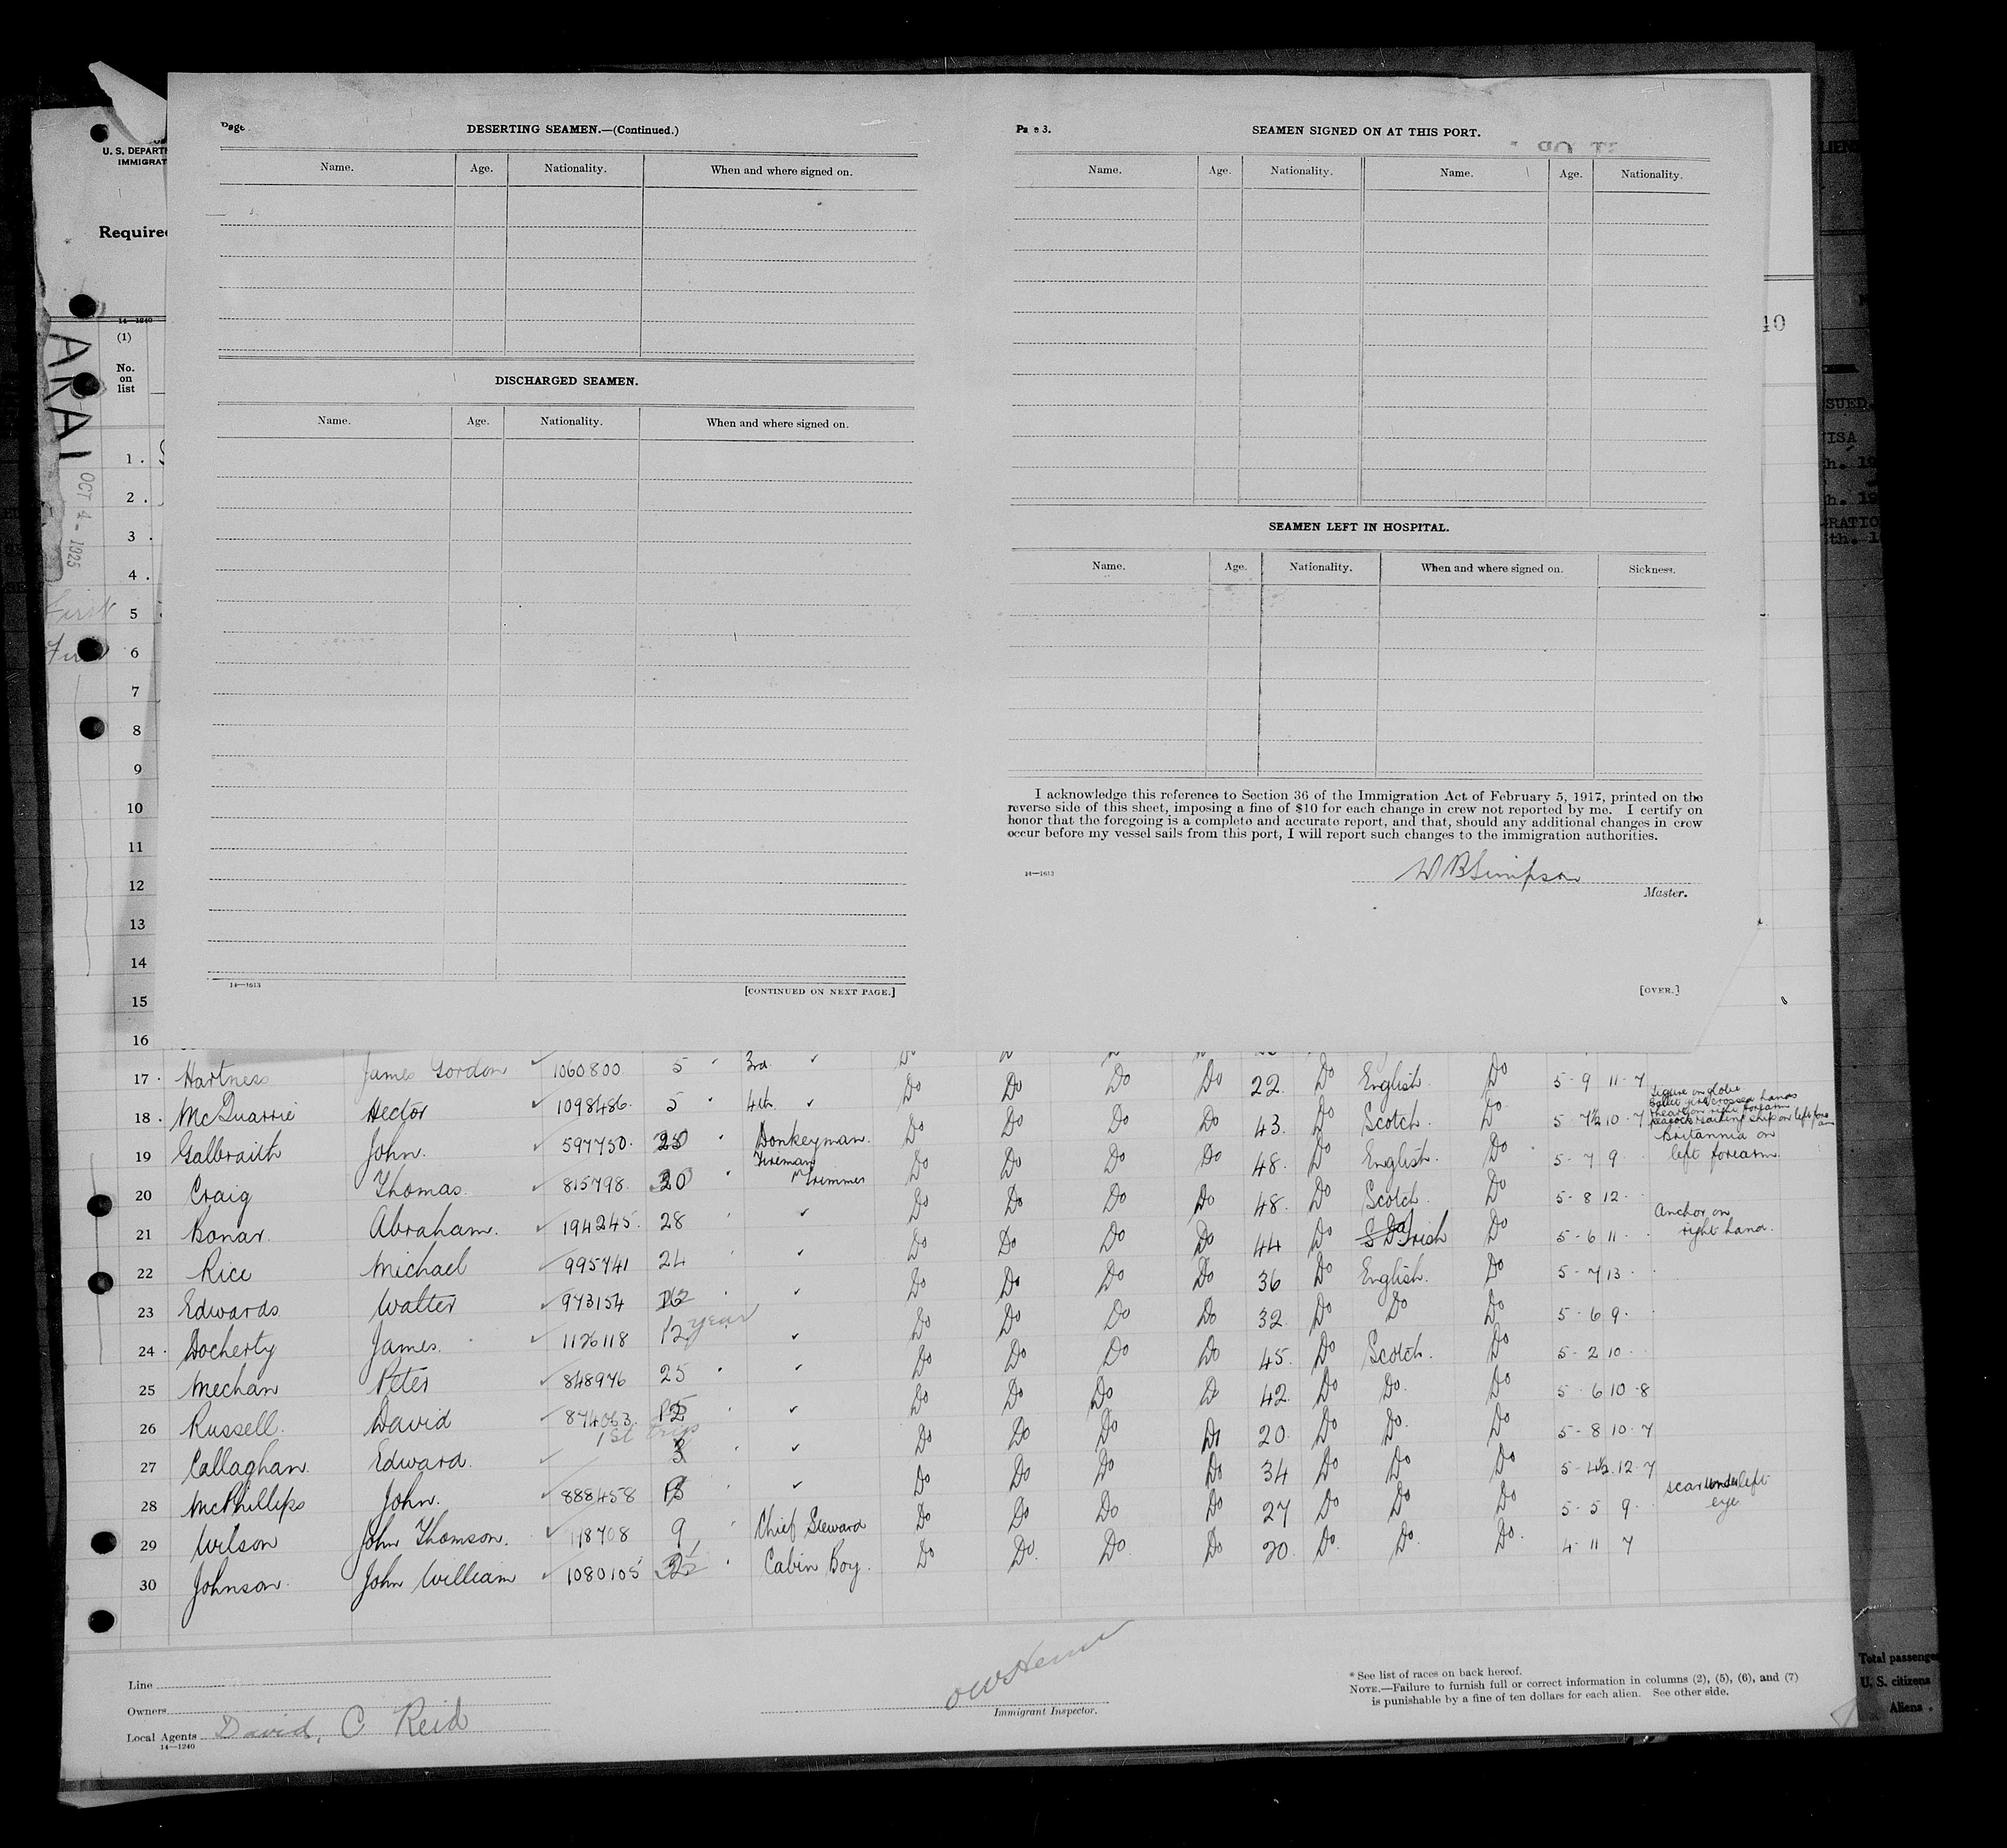 DESERTING SEAMEN.—(Continued.)
Name. Age. Nationality. When and where signed on.
DISCHARGED SEAMEN.
Name. Age. Nationality. When and where signed on.
14—1613 [CONTINUED ON NEXT PAGE.]
SEAMEN SIGNED ON AT THIS PORT.
Name. Age. Nationality. Name. Age. Nationality.
SEAMEN LEFT IN HOSPITAL.
Name. Age. Nationality. When and where signed on. Sickness.
I acknowledge this reference to Section 36 of the Immigration Act of February 5, 1917, printed on the
reverse side of this sheet, imposing a fine of $10 for each change in crew not reported by me. I certify on
honor that the foregoing is a complete and accurate report, and that, should any additional changes in crew
occur before my vessel sails from this port, I will report such changes to the immigration authorities.
W B Simpson
14—1613 Master.
[OVER.]
U. S. DEPART
IMMIGRAT
Require
14—1240
(1)
No.
on
list
OCT 4 - 1925
1
2
3
4
5
6
7
8
9
10
11
12
13
14
15
16
17 Hartness James Gordon 1060800 5 3rd Do Do Do Do 22 Do English Do 5-9 11-7
18 McQuarrie Hector 1098486 5 4th Do Do Do Do 43 Do Scotch Do 5-7½ 10-7
19 Galbraith John 597750 Donkeyman Do Do Do Do 48 Do English Do 5-7 9 Britannia on left forearm
20 Craig Thomas 815798 Fireman Trimmer Do Do Do Do 48 Do Scotch Do 5-8 12
21 Bonar Abraham 194245 28 Do Do Do Do 44 Do Irish Do 5-6 11 Anchor on right hand.
22 Rice Michael 995741 24 Do Do Do Do 36 Do English Do 5-7 13
23 Edwards Walter 973154 Do Do Do Do 32 Do Do Do 5-6 9
24 Docherty James 1126118 12 year Do Do Do Do 45 Do Scotch Do 5-2 10
25 Mechan Peter 848976 25 Do Do Do Do 42 Do Do Do 5-6 10-8
26 Russell David 874063 Do Do Do Do 20 Do Do Do 5-8 10-7
27 Callaghan Edward 1st trip Do Do Do Do 34 Do Do Do 5-4½ 12-7
28 McPhillips John 888458 Do Do Do Do 27 Do Do Do 5-5 9 scar under left eye
29 Wilson John Thomson 118708 9 Chief Steward Do Do Do Do 20 Do Do Do 4-11 7
30 Johnson John William 1080105 Cabin Boy
Line
Owners
Local Agents David, C Reid
14—1240
Immigrant Inspector.
* See list of races on back hereof.
NOTE.—Failure to furnish full or correct information in columns (2), (5), (6), and (7)
is punishable by a fine of ten dollars for each alien. See other side.
Total passenge
U. S. citizens
Aliens